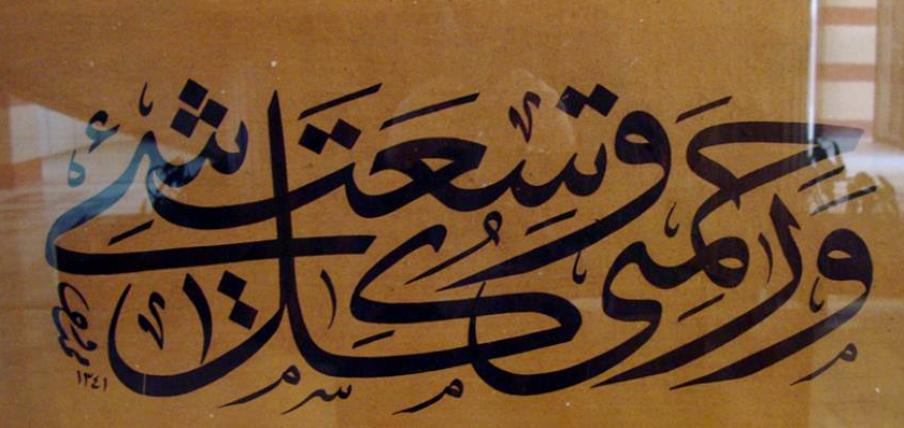 وَرَحْمَتِي وَسِعَتْ كُلَّ شَيْءٍ
١٣٤١